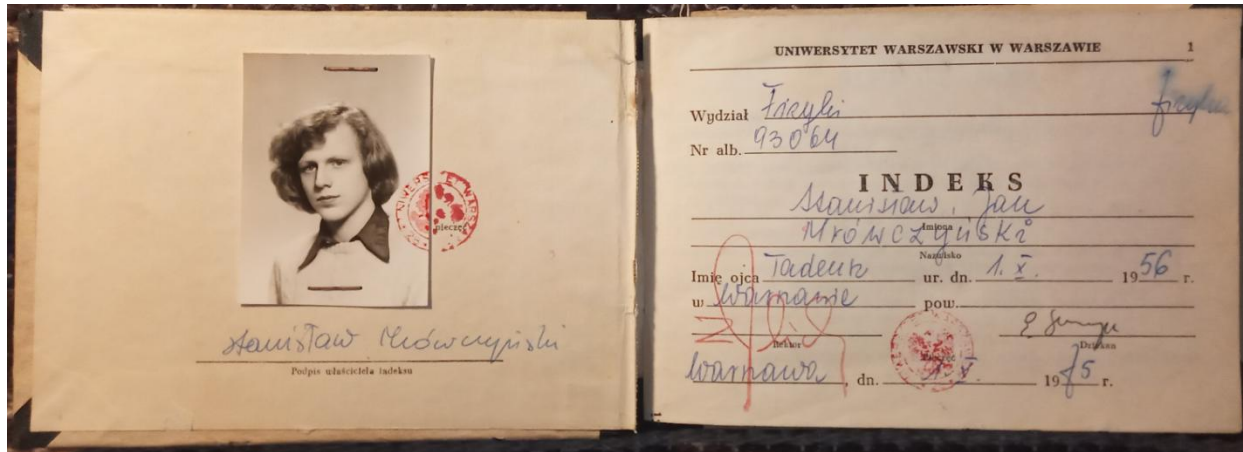 UNIWERSYTET WARSZAWSKI
pieczęć
Stanisław Mrówczyński
Podpis właściciela indeksu
UNIWERSYTET WARSZAWSKI W WARSZAWIE 1
Wydział Fizyki fizyka
Nr alb. 93064
INDEKS
Stanisław, Jan
Imiona
Mrówczyński
Nazwisko
Imię ojca Tadeusz ur. dn. 1. X. 1956 r.
w Warszawie pow.
Rektor pieczęć Dziekan
Warszawa, dn. 1. X. 1975 r.